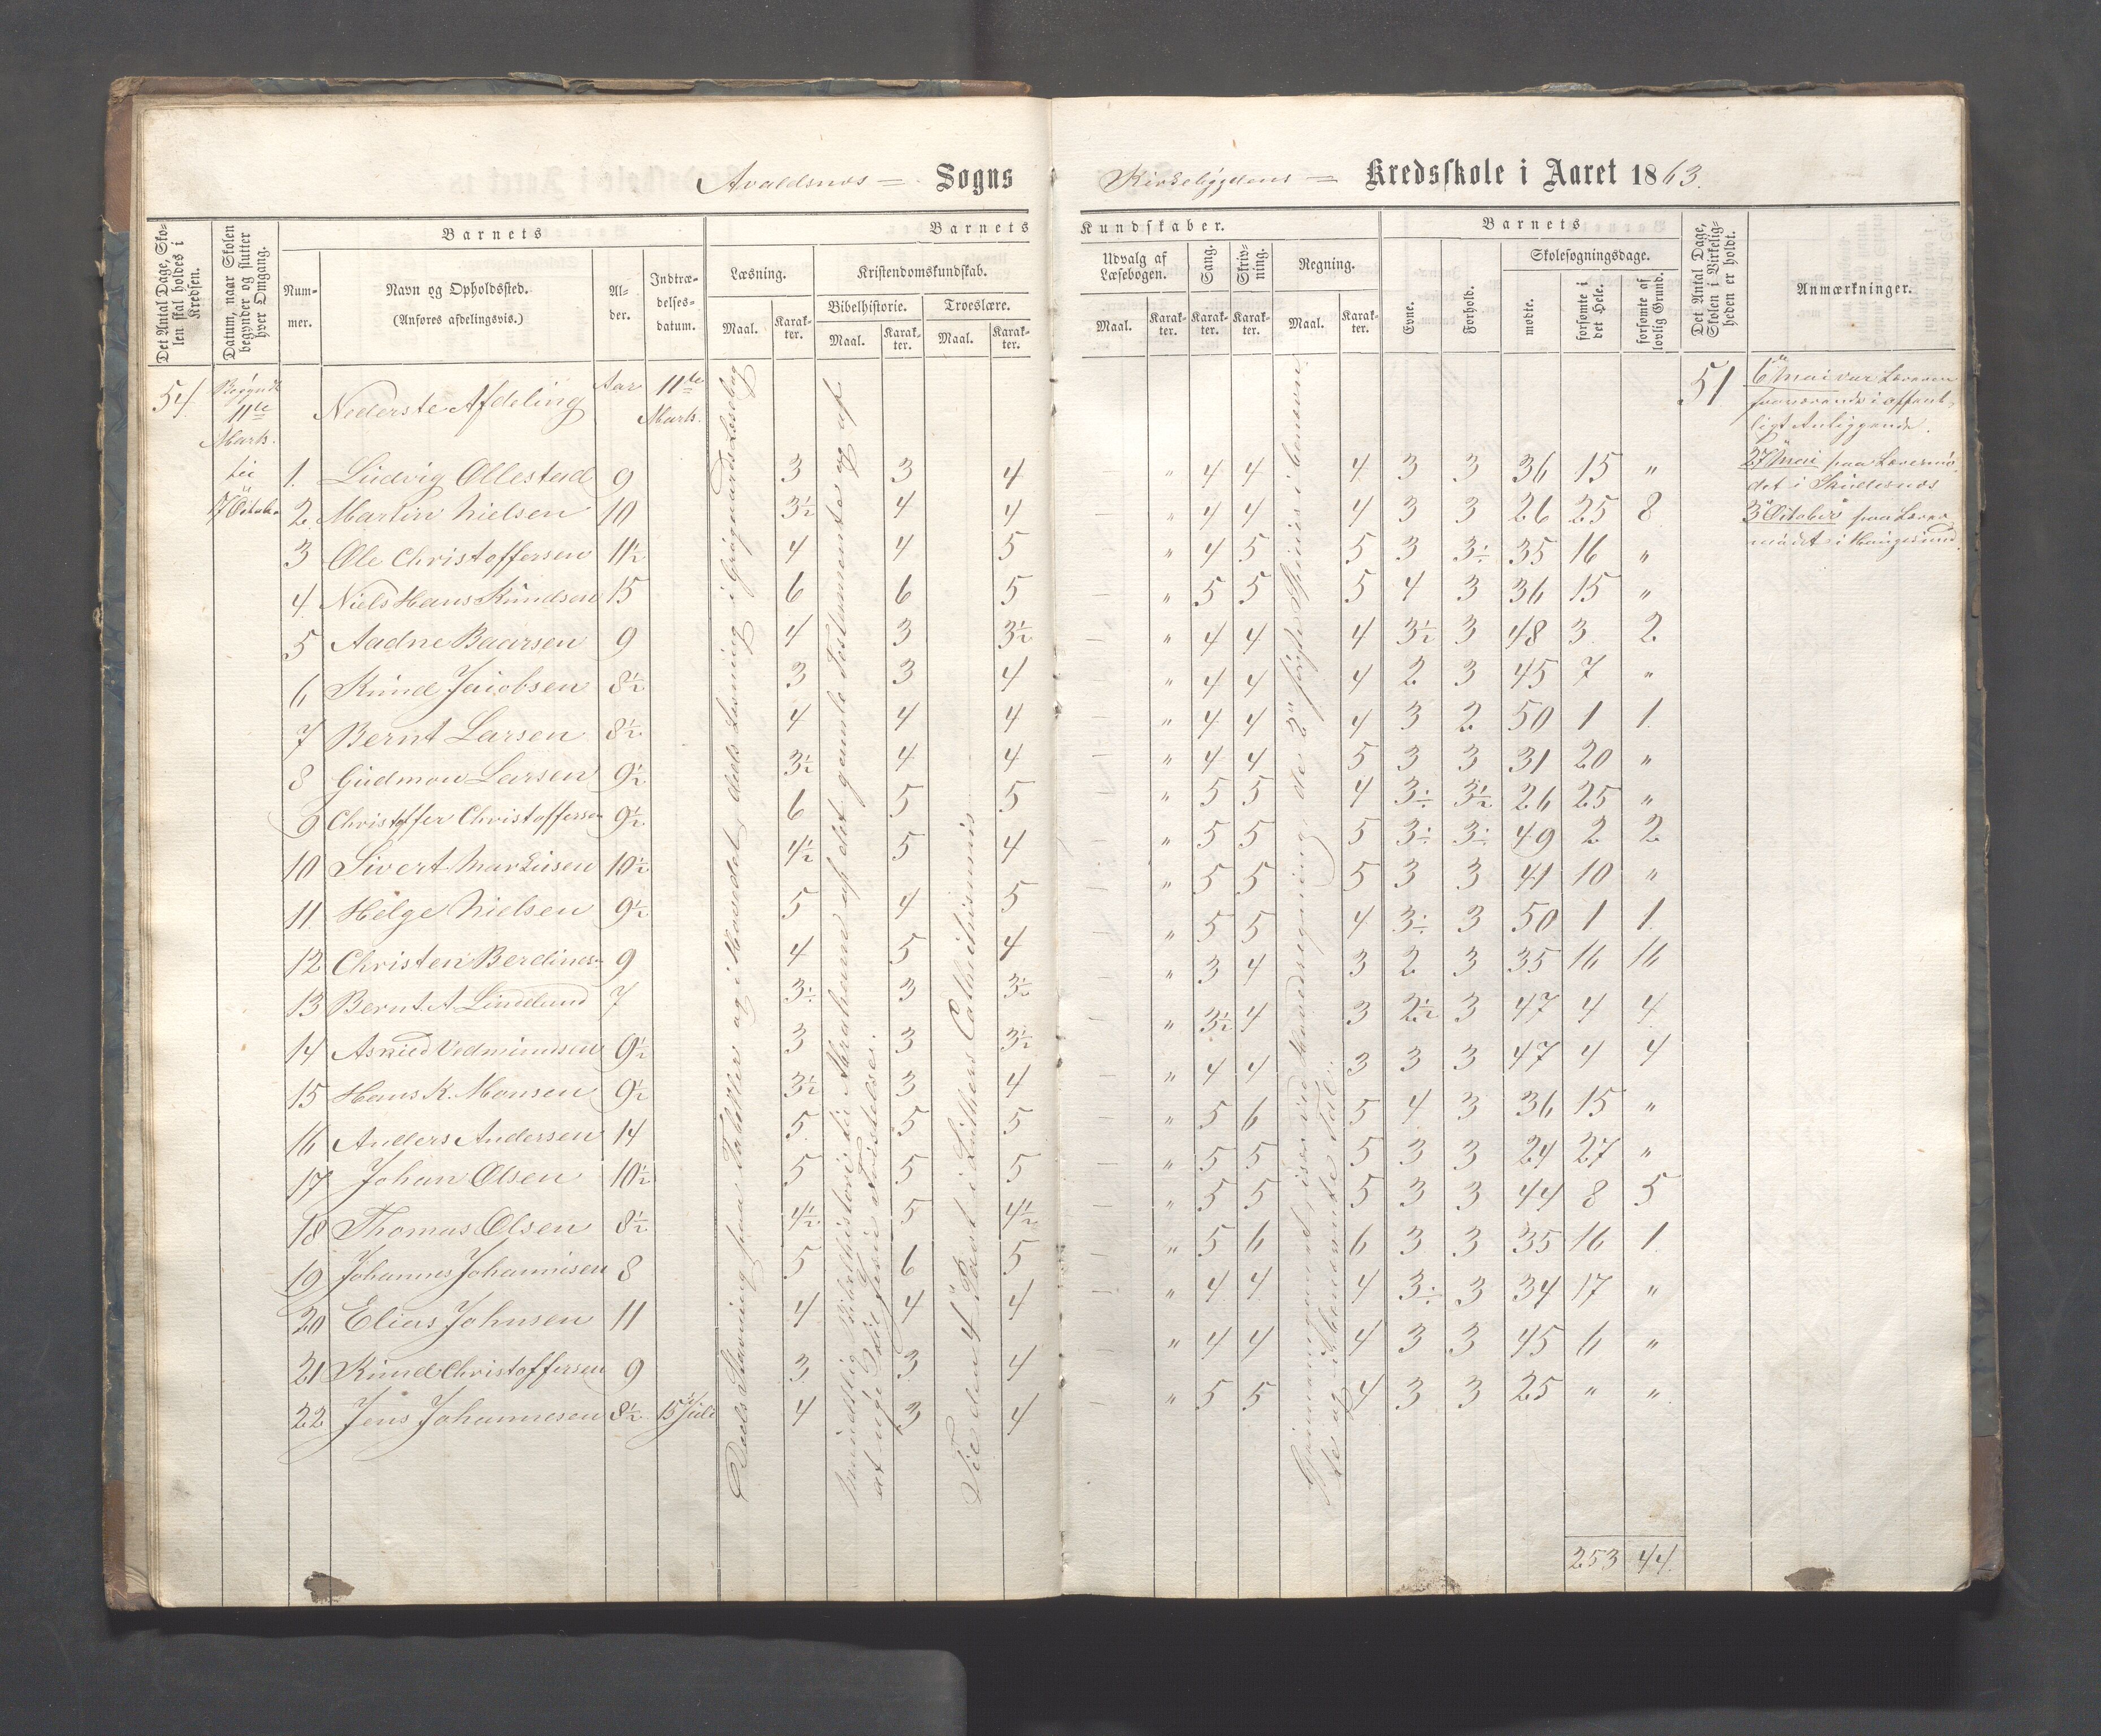 Avaldsnæs = Sogns
Kirkebygdens = Kredsskole i Aaret 1863.
Det Antal Dage, Skolen skal holdes i Kredsen.
Datum, naar Skolen begynder og slutter hver Omgang.
Barnets
Nummer.
Navn og Opholdssted.
(Anføres afdelingsvis.)
Alder.
Indtrædelsesdatum.
Barnets Kundskaber.
Læsning.
Maal.
Karakter.
Kristendomskundskab.
Bibelhistorie.
Maal.
Karakter.
Troeslære.
Maal.
Karakter.
Udvalg af Læsebogen.
Maal.
Karakter.
Sang.
Karakter.
Skrivning.
Karakter.
Regning.
Maal.
Karakter.
Barnets
Evne.
Forhold.
Skolesøgningsdage.
mødte.
forsømte i det Hele.
forsømte af lovlig Grund.
Det Antal Dage, Skolen i Virkeligheden er holdt.
Anmærkninger.
54 Begyndt 11te Marts. Nederste Afdeling Aar 11te Marts. 51
til
7 Octob.
1. Ludvig Ollestad 9 3 3 4 " 4 4 4 3 3 36 15 "
2. Martin Nielsen 10 3½ 4 4 " 4 4 4 3 3 26 25 8
3 Ole Christoffersen 11½ 4 4 5 " 4 5 5 3 3÷ 35 16 "
4. Niels Hans Knudsen 15 6 6 5 " 5 5 5 4 3 36 15 "
5 Aadne Baarsen 9 4 3 3½ " 4 4 4 3½ 3 48 3 2
6 Knud Jacobsen 8½ 3 3 4 " 4 4 4 2 3 45 7 "
7 Bernt Larsen 8½ 4 4 4 " 4 4 4 3 2 50 1 1
8 Gudmon Larsen 9½ 3½ 4 4 " 4 4 5 3 3 31 20 "
9 Christoffer Christoffersen 9½ 6 5 5 " 5 5 4 3÷ 3½ 26 25 "
10 Sivert Markusen 10½ 4½ 5 4 " 5 5 5 3÷ 3÷ 49 2 2
11 Helge Nielsen 9½ 5 4 5 " 5 5 5 3 3 41 10 "
12 Christen Berdines 9 4 5 4 " 5 5 4 3÷ 3 50 1 1
13 Bernt A Lindlund 7 3÷ 3 3½ " 3 4 3 2 3 35 16 16
14 Vedmundsen 9½ 3 3 3½ " 3½ 4 3 2½ 3 47 4 4
15 Hans K. Monsen 9½ 3½ 3 4 " 4 4 3 3 3 47 4 4
16 Anders Andersen 14 5 5 5 " 5 6 5 4 3 36 15 "
17 Johan Olsen 10½ 5 5 5 " 5 5 5 3 3 24 27 "
18 Thomas Olsen 8½ 4½ 5 4½ " 5 5 5 3 3 44 8 5
19 Johannes Johannesen 8 5 6 5 " 5 6 6 3 3 35 16 1
20 Elias Johnsen 11 4 4 4 " 4 4 4 3÷ 3 34 17 "
21 Knud Christoffersen 9 3 3 4 " 4 4 4 3 3 45 6 "
22 Jens Johannesen 8½ 15 Juli 4 3 4 " 5 5 4 3 3 25 " "
253 44.
Deels Stavning paa Tabeller og i Hovedet, deels Læsning i Grøgaards Læsebog
Mundtlig Bibelhistorie fra Abraham af det gamle Testamente og af
det nye til Jesu Fristelse.
Til den 4" Part i Luthers Catechismus
de 2" første Species i benævn
te og ubenævnte Tal.
6" Mai var Læreren
fraværende i offent-
ligt Anliggende.
27" Mai paa Læremø-
det i Skudesnæs
3" October paa Lærer
mødet i Haugesund.